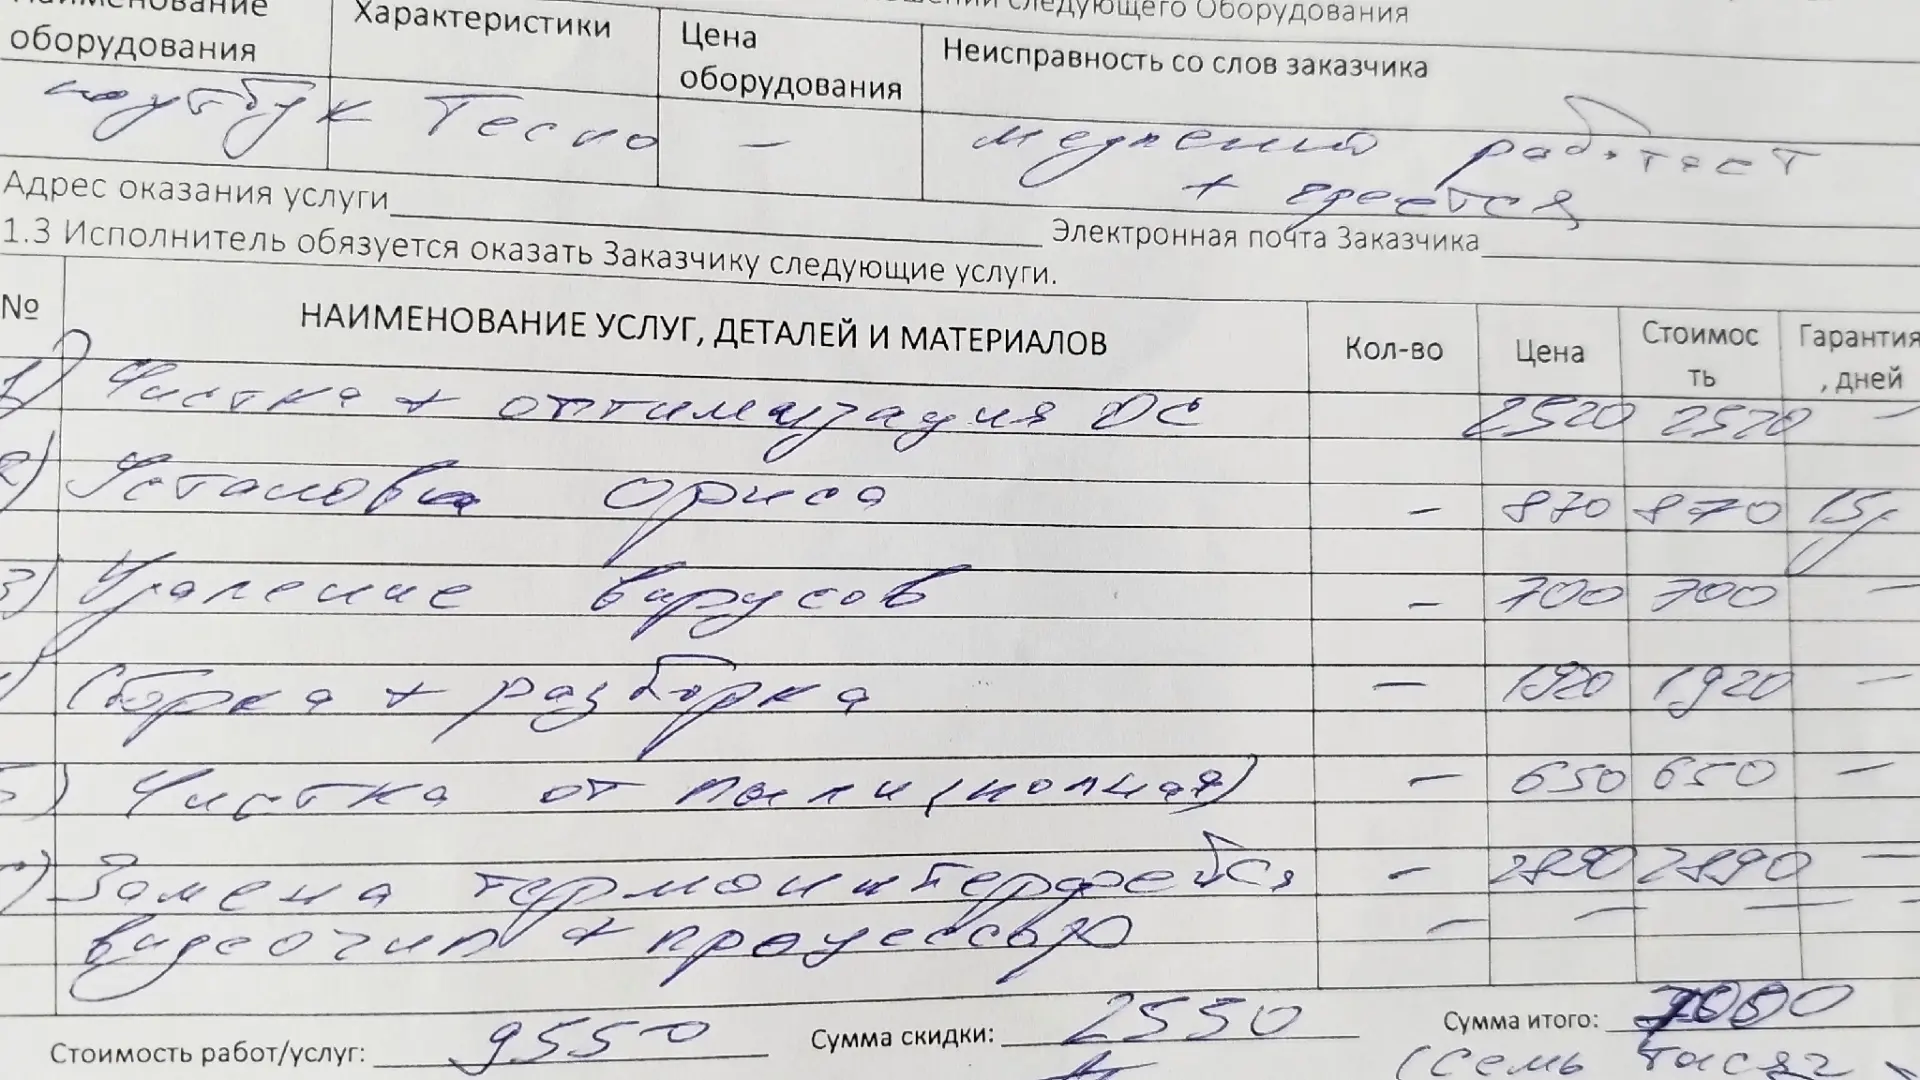 следующего Оборудования
Наименование оборудования Характеристики Цена оборудования Неисправность со слов заказчика
ноутбук Tecno — медленно работает
+ греется
Адрес оказания услуги Электронная почта Заказчика
1.3 Исполнитель обязуется оказать Заказчику следующие услуги.
№ НАИМЕНОВАНИЕ УСЛУГ, ДЕТАЛЕЙ И МАТЕРИАЛОВ Кол-во Цена Стоимость Гарантия, дней
1) Чистка + оптимизация ОС 2520 2520 —
2) Установка офиса — 870 870 15
3) Удаление вирусов — 700 700 —
Сборка + разборка — 1920 1920 —
5) Чистка от пыли (полная) — 650 650 —
Замена термоинтерфейса — 2890 2890 —
видеочип + процессор — — — —
Стоимость работ/услуг: 9550 Сумма скидки: 2550 Сумма итого: 7000
(Семь тысяч